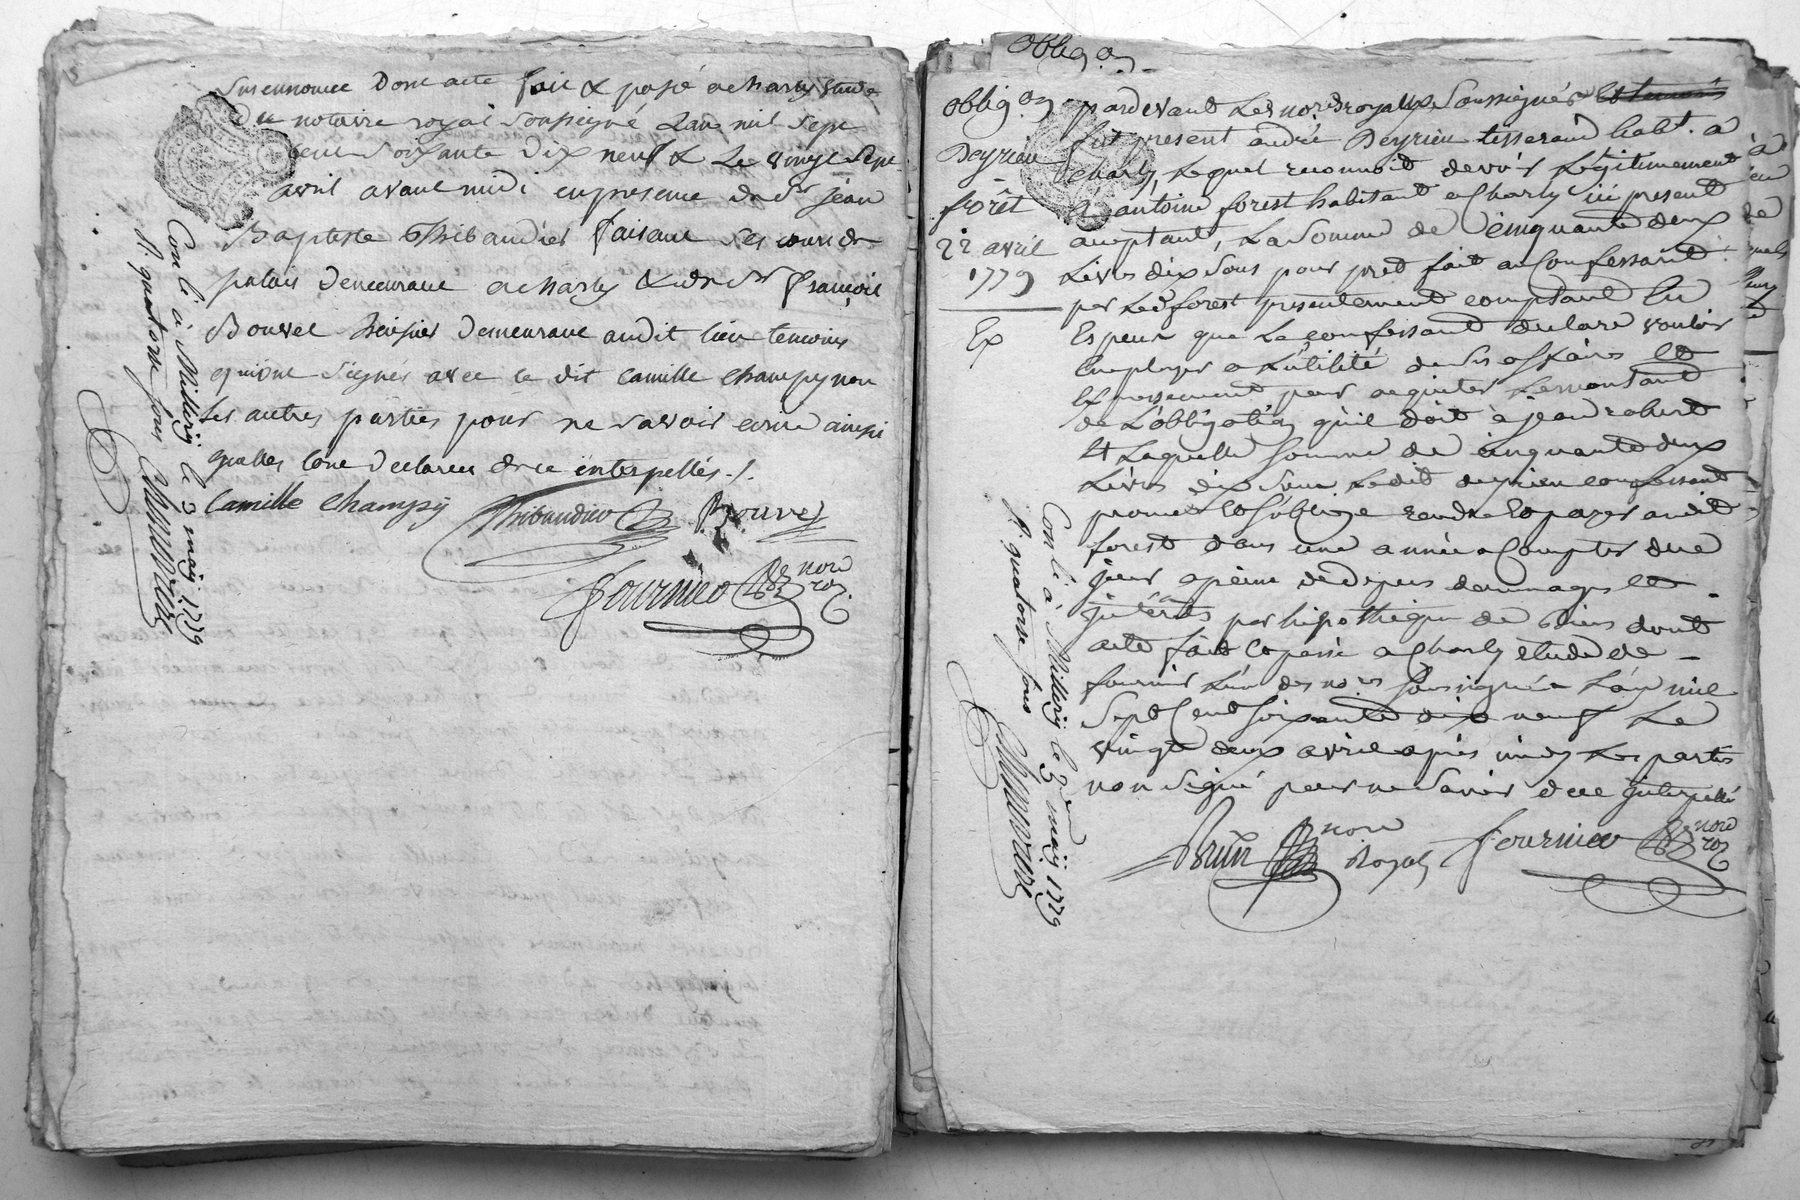 Susennoncé Dont acte fait & passé a charly Etude
Du notaire royal soussigné Lan mil sept
cent soixante dix neuf & Le vingt sept
avril avant midi en presence de sr jean
Baptiste Thibaudier faisant ses cours de
palais Demeurant a charly & de sr françois
Bouvet huissier Demeurant audit lieu temoins
qui ont signés avec le dit camille champy non
les autres parties pour ne savoir ecrire ainsi
quelles lont declarées de ce interpellés ./.
Camille champy Thibaudier Bouvet
fournier nore
roy.
Con lé à Millery le 3 may 1779
R. quatorse sous
obligon
obligon
Deyrieu
à
forêt
22 avril
1779
Ex
pardevant Les nores royaux Soussignés et temoins
fut present andré Deyrieu tisserand habt. à
Charly Lequel reconnoit devoir Légitimement
à antoine forest habitant a Charly ici present
acceptant, La somme de Cinquante deux
Livres dix sous pour prêt fait au Confessant
par Led forest presentement comptant En
Especes que Le confessant declare vouloir
Employer a Lutilité de ses affaires et
Expressement pour acquiter Le montant
de L'obligation qu'il doit à jean robert
et Laquelle somme de cinquante deux
Livres dix sous Ledit deyrieu confessant
promet et s'oblige rendre et payer audit
forest dans une année a Compter de ce
jour a peine de depens dommages et
interêts par hipotheque de biens dont
acte fait et passé a Charly etude de
fournier L'un des nores soussignés L'an mil
Sept Cent soixante dix neuf Le
vingt deux avril après midy Les parties
non signé pour ne savoir de ce interpellé
Brun nore Royal fournier nore
roy
Con lé à Millery le 3 may 1779
R. quatorse sous